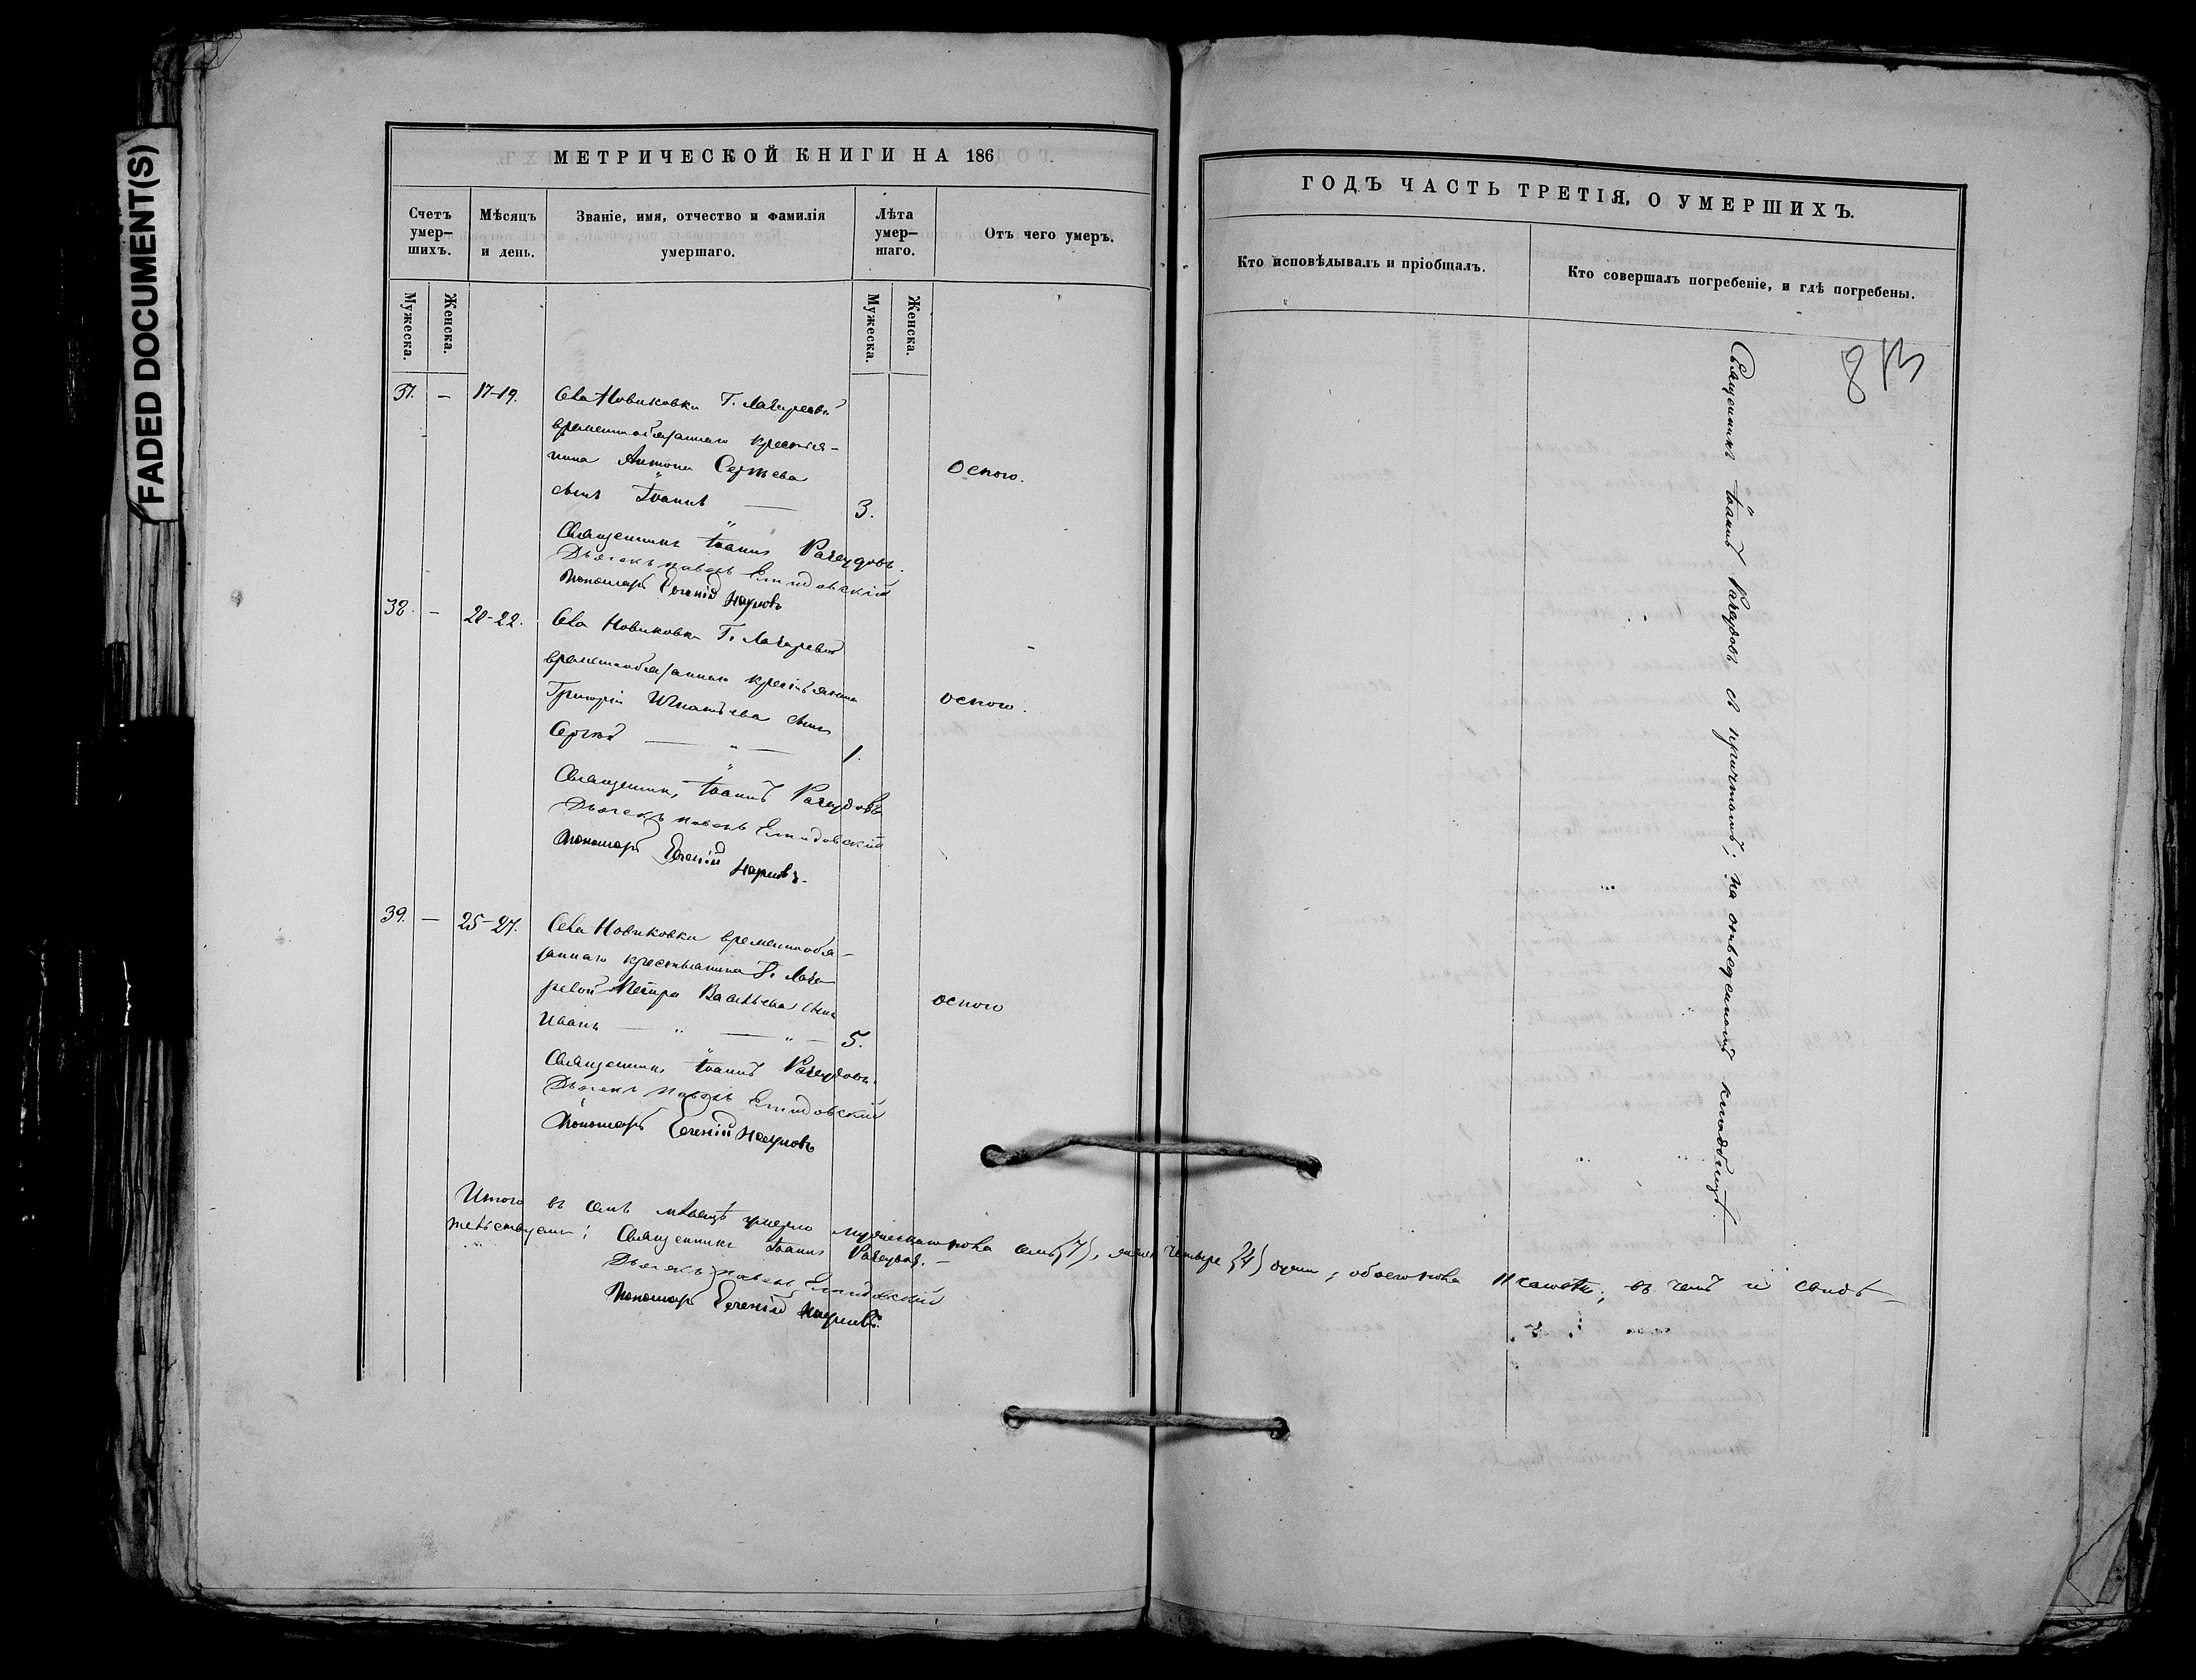 FADED DOCUMENT(S)
МЕТРИЧЕСКОЙ КНИГИ НА 186
Счетъ умер–шихъ.
Мѣсяцъ и день.
Званіе, имя, отчество и фамилія умершаго.
Лѣта умер–шаго.
Отъ чего умеръ.
Мужеска.
Женска.
Мужеска.
Женска.
37. — 17-19. Села Новиковки Г. Лазаревой
временнообязаннаго крестья-
нина Антона Сергѣева
сынъ Іоаннъ — 3. оспою.
Священникъ Іоаннъ
Дьячекъ Павелъ
Пономарь Евгеній Наумовъ
38. — 20-22. Села Новиковки Г. Лазаревой
временнообязаннаго крестьянина
Григорія Игнатьева сынъ
Сергѣй — „ — 1. оспою.
Священникъ Іоаннъ
Дьячекъ Павелъ
Пономарь Евгеній Наумовъ.
39. — 25-27. Села Новиковки временнообя-
заннаго крестьянина Г. Лаза-
ревой Петра Васильева сынъ
Иванъ — „ — „ — 5. оспою
Священникъ Іоаннъ
Дьячекъ Павелъ
Пономарь Евгеній Наумовъ
Итого въ семъ мѣсяцѣ умерло мужескаго пола семь (7), женска четыре (4) души, обоего пола 11 человѣкъ; въ чемъ и свидѣ-
тельствуемъ: Священникъ Іоаннъ
Дьячекъ Павелъ
Пономарь Евгеній Наумовъ.
ГОДЪ ЧАСТЬ ТРЕТІЯ, О УМЕРШИХЪ.
Кто исповѣдывалъ и пріобщалъ.
Кто совершалъ погребеніе, и гдѣ погребены.
Священникъ Іоаннъ съ причтомъ; на отведенномъ кладбищѣ.